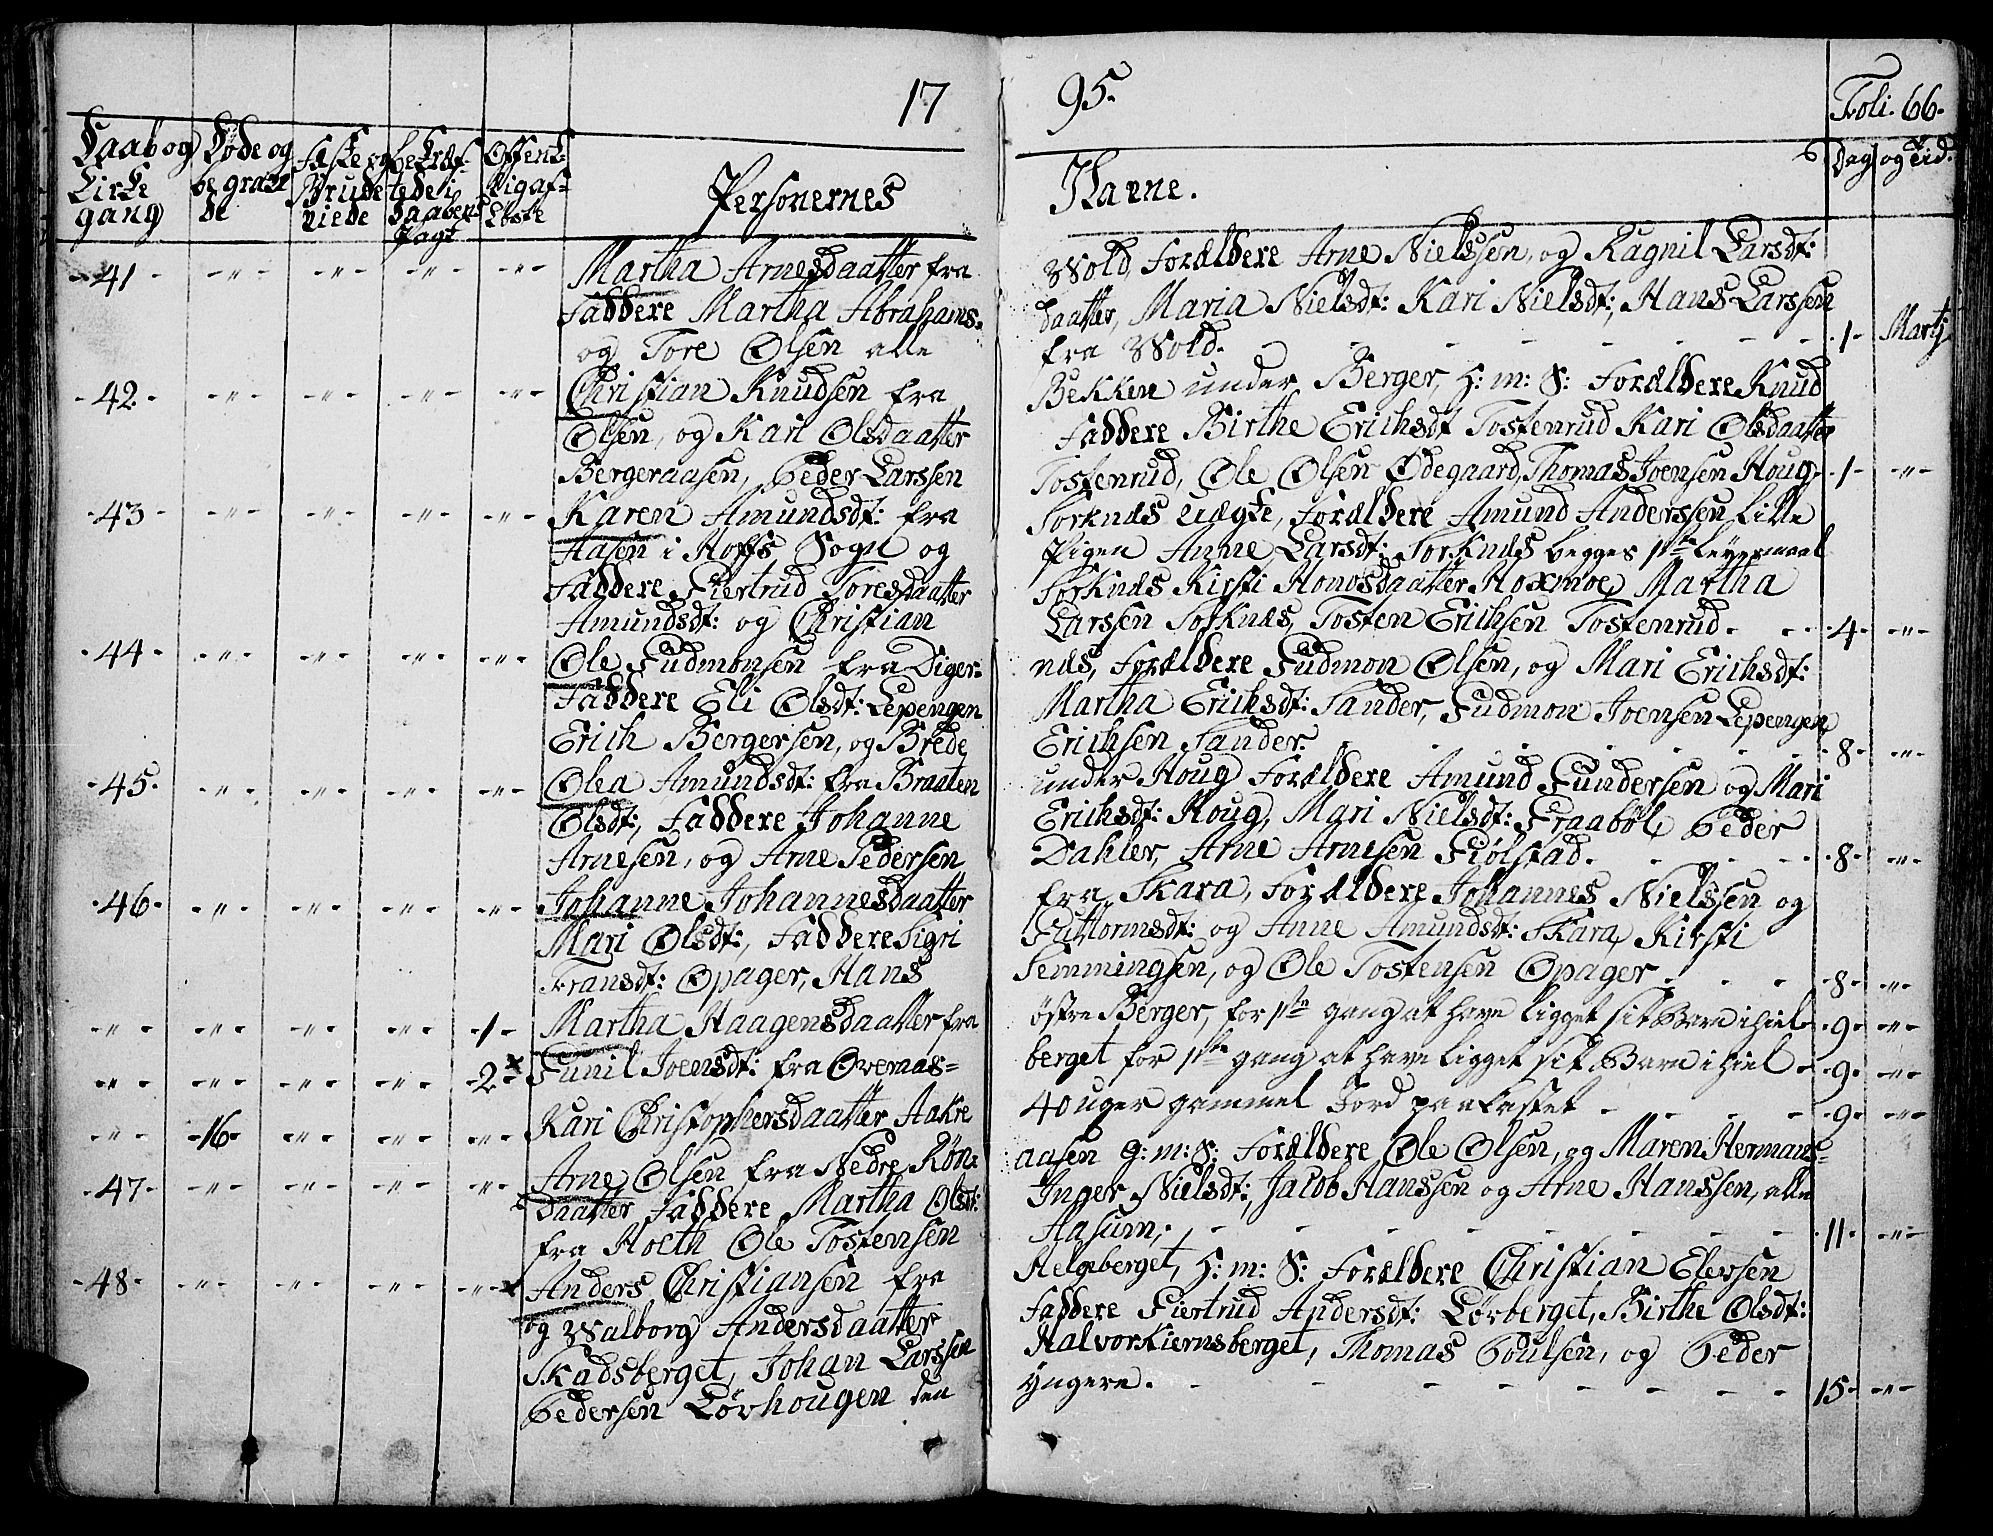 17 95. Foli. 66.
Daab og Kirke gang
Døde og begravede
Fæste og Brude viede
bekræftede i Daabens Pagt
Offentlig afløste
Personernes Navne.
Dag og Tid.
-41- -"- -"- -"- -"- Martha Arnesdaatter fra Wold, Forældere Arne Nielssen, og Ragnil Larsdt:
Faddere Martha Abrahams- daatter, Maria Nielsdt: Kari Nielsdt:, Hans Larssen
og Tore Olsen alle fra Wold. -1- Martj
-42- -"- -"- -"- -"- Christian Knudsen fra Bekken under Berger, H: m: S: Forældere Knud
Olsen, og Kari Olsdaatter Faddere Birthe Erichsdt Tostenrud Kari Olsdaatter
Bergeraasen, Peder Larssen Tostenrud, Ole Olsen Ødegaard, Thomas Joensen Houg -1- -"-
-43- -"- -"- -"- -"- Karen Amundsdt: fra Torknæs uægte, Forældere Amund Anderssen Lille
Aasen i Hoffs Sogn og Pigen Anne Larsdt: Torknæs begges 1ste Leyermaal
Faddere Giertrud Toresdaatter Torknæs Kirsti Monosdaatter Moxmoe, Martha
Amundsdt: og Christian Larssen Torknæs, Tosten Erichsen Tostenrud. -4- -"-
-44- -"- -"- -"- -"- Ole Gudmonsen fra Diger- næs, Forældere Gudmon Olsen, og Mari Erichsdt:
Faddere Eli Olsdt: Lepengen Martha Erichsdt: Sander, Gudmon Joensen Lepengen,
Erich Bergersen, og Brede Erichsen Sander. -8- -"-
-45- -"- -"- -"- -"- Olea Amundsdt: fra Braaten under Houg Forældere Amund Gundersen og Mari
Olsdt:, Faddere Johanne Erichsdt: Houg, Mari Nielsdt: Fraabøl, Peder
Arnesen, og Arne Pedersen Dahler, Arne Arnesen Fiølstad. -8- -"-
-46- -"- -"- -"- -"- Johanne Johannesdaatter fra Skara, Forældere Johannes Nielssen og
Mari Olsdt:, Faddere Sigri Guttormsdt: og Anne Amundsdt: Skara, Kirsti
Fransdt: Opager, Hans Semmingsen, og Ole Tostensen Opager. -8- -"-
-"- -"- -"- -"- -1- Martha Haagensdaatter fra østre Berger, for 1ste gang at have ligget sit Barn ihiel -9- -"-
-"- -"- -"- -"- -2- Gunil Joensdt: fra Overnæs- berget for 1ste gang at have ligget sit Barn ihiel -9- -"-
-"- -16- -"- -"- -"- Kari Christophersdaatter Aakre 40 uger gammel Jord paakastet -9- -"-
-47- -"- -"- -"- -"- Arne Olsen fra Nedre Røn- aasen G: m: S: Forældere Ole Olsen, og Maren Hermans-
daatter Faddere Martha Olsdt: Inger Nielsdt:, Jacob Hanssen og Arne Hanssen, alle
fra Moeth Ole Tostensen Aasum; -11- -"-
-48- -"- -"- -"- -"- Anders Christiansen fra Helgeberget, H: m: S: Forældere Christian Elevsen
og Walborg Andersdaatter Faddere Giertrud Andersdt: Løvberget, Birthe Olsdt:
Skadsberget, Johan Larssen Halvorkiernsberget, Thomas Poulsen, og Peder
Pedersen Løvhougen den yngere. -15- -"-